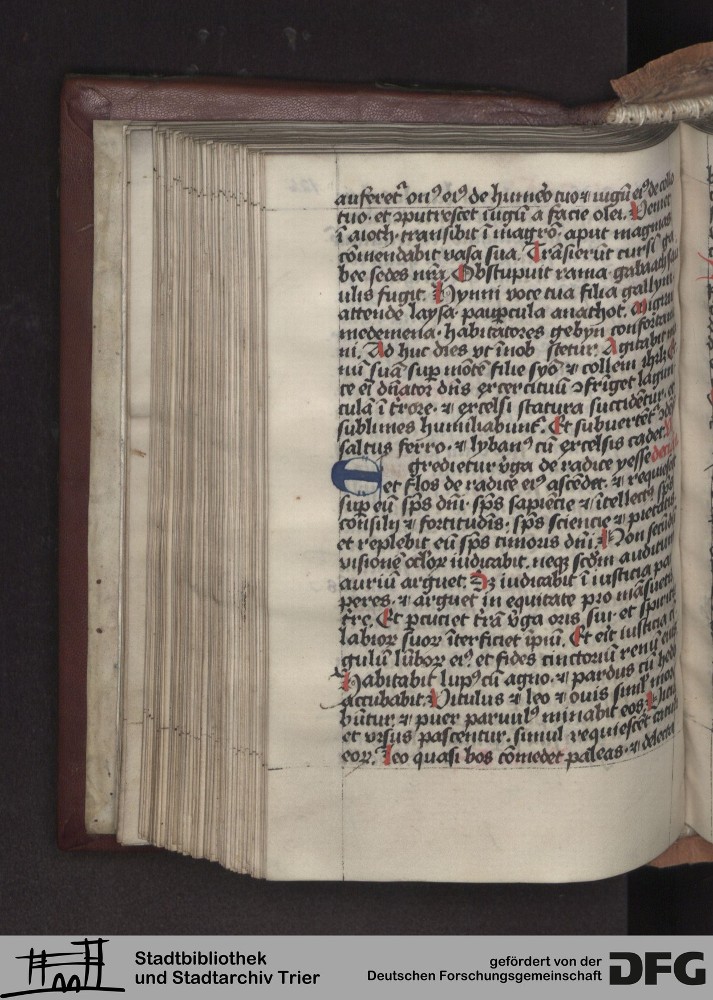 auferet᷑ onꝰ eiꝰ de humero tuo ⁊ iugū eiꝰ de collo
tuo · et ꝯputrescet iugū a facie olei. Veniet
ī aioth · transibit ī magro · aput magmas
cōmendabit vasa sua. Trāsierūt cursī ga
bee sedes nr̄a. Obstupuit rama · gabaath sau
ulis fugit. Hynni voce tua filia gallym
attende laysa · paupcula anathot.
medemena · habitatores gebyn confortam
ni. Ad huc dies vt ī nob stetur. Agitabit ma
nū suā sup mōtē filie syō ⁊ collem ihrl̄m
ce ei dn̄ator dn̄s exercituū ꝯfriget lagun
culā ī tr̄rore · ⁊ excelsi statura succidētur · et
sublimes humiliabunt᷑. Et subuertēt᷑ ꝯdēsa
saltus ferro · ⁊ lybanꝰ cū excelsis cadet.
Egredietur v̄ga de radice yesse
et flos de radice eiꝰ ascēdet · ⁊ requiescet
sup eū sp̄s dn̄i · sp̄s sapiēcie ⁊ ītellectꝰ sp̄s
cōsilij ⁊ fortitudīs · sp̄s sciencie ⁊ pietatis
et replebit eū sp̄s timoris dn̄i. Non secūdū
visionē oc̄lor iudicabit · neqꝫ scd̄m auditum
auriū arguet. Sꝫ iudicabit ī iusticia pau
peres · ⁊ arguet in equitate pro māsuetis
tr̄re. Et pcuciet tr̄ā v̄ga oris sui · et spiritu
labior suor īterficiet īpiū. Et eit iusticia ci
gulū lūbor eiꝰ et fides cinctoriū renū eiꝰ
Habitabit lupꝰ cū agno · ⁊ pardus cū hedo
accubabit. Vitulus ⁊ leo ⁊ ouis simul mora
būtur · ⁊ puer paruulꝰ minabit eos. Vitulꝰ
et vrsus pascentur · simul requiescēt catuli
eor. Leo quasi bos cōmedet paleas · ⁊ delectabit᷑
Stadtbibliothek
und Stadtarchiv Trier
gefördert von der
Deutschen Forschungsgemeinschaft DFG